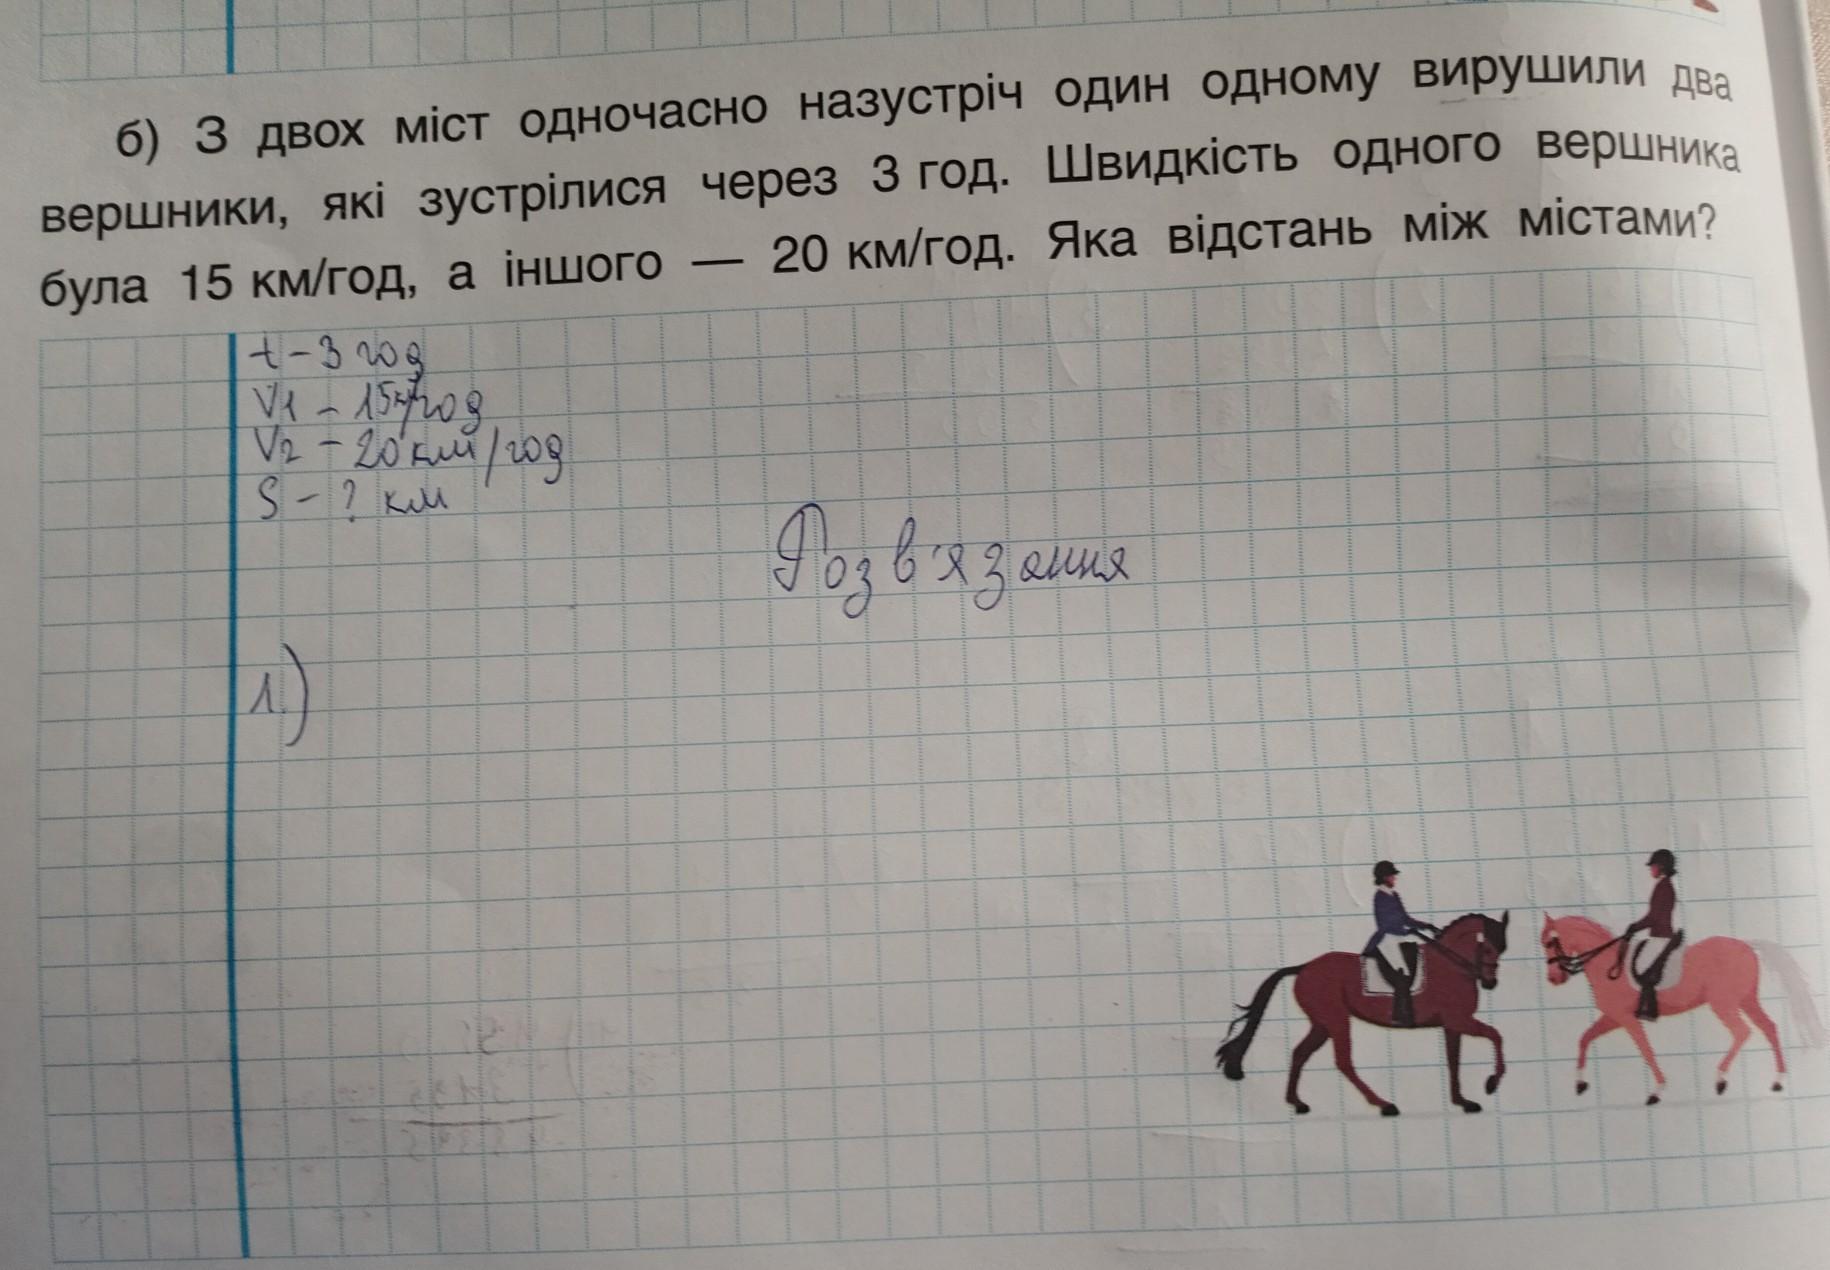 б) З двох міст одночасно назустріч один одному вирушили два
вершники, які зустрілися через 3 год. Швидкість одного вершника
була 15 км/год, а іншого — 20 км/год. Яка відстань між містами?
t – 3 год
V1 – 15км/год
V2 – 20 км/год
S – ? км
Розв'язання
1.)